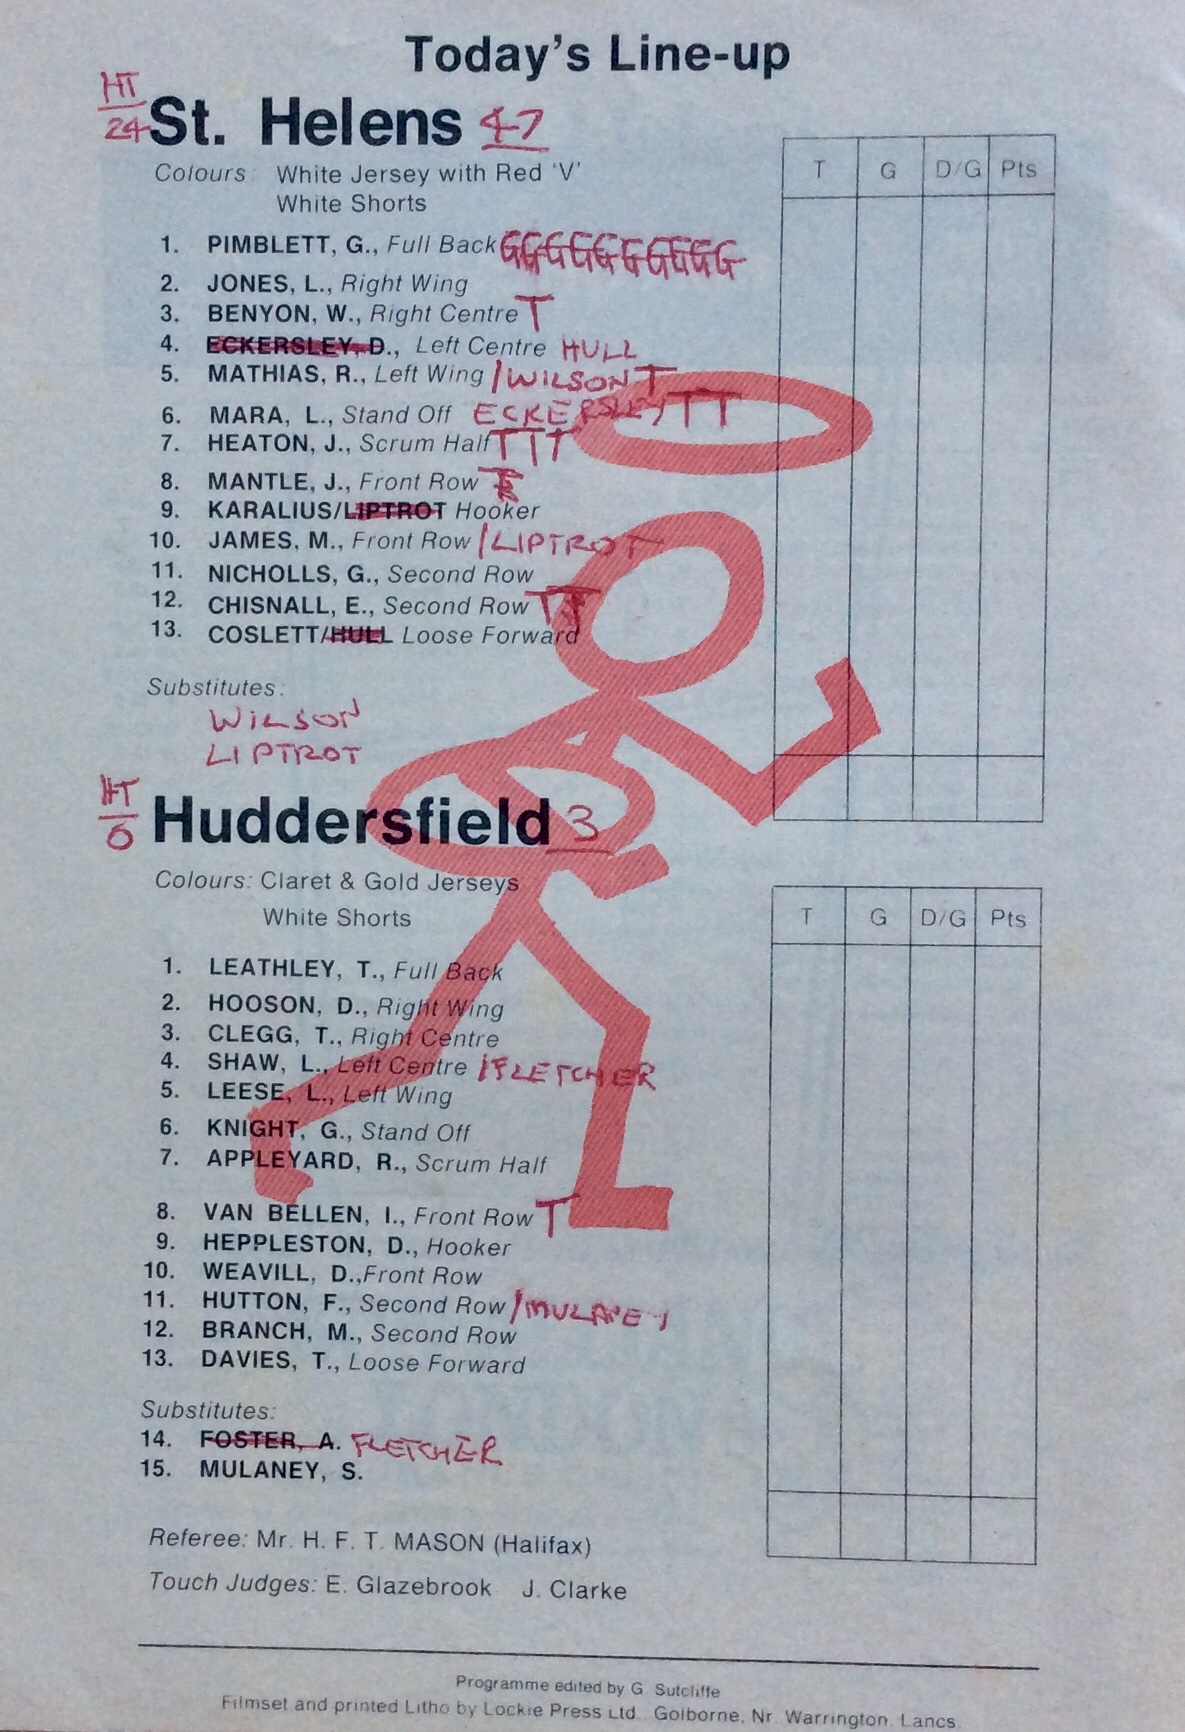 Today's Line-up
HT
24 St. Helens 47
Colours: White Jersey with Red 'V'
White Shorts
T G D/G Pts
1. PIMBLETT, G., Full Back GGGGGGGGGG
2. JONES, L., Right Wing
3. BENYON, W., Right Centre T
4. ECKERSLEY, D., Left Centre HULL
5. MATHIAS, R., Left Wing /WILSON T
6. MARA, L., Stand Off ECKERSLEY TT
7. HEATON, J., Scrum Half TTT
8. MANTLE, J., Front Row
9. KARALIUS/LIPTROT Hooker
10. JAMES, M., Front Row /LIPTROT
11. NICHOLLS, G., Second Row
12. CHISNALL, E., Second Row T
13. COSLETT/HULL Loose Forward
Substitutes:
WILSON
LIPTROT
HT
0 Huddersfield 3
Colours: Claret & Gold Jerseys
White Shorts
T G D/G Pts
1. LEATHLEY, T., Full Back
2. HOOSON, D., Right Wing
3. CLEGG, T., Right Centre
4. SHAW, L., Left Centre /FLETCHER
5. LEESE, L., Left Wing
6. KNIGHT, G., Stand Off
7. APPLEYARD, R., Scrum Half
8. VAN BELLEN, I., Front Row T
9. HEPPLESTON, D., Hooker
10. WEAVILL, D.,Front Row
11. HUTTON, F., Second Row /MULANEY
12. BRANCH, M., Second Row
13. DAVIES, T., Loose Forward
Substitutes:
14. FOSTER, A. FLETCHER
15. MULANEY, S.
Referee: Mr. H. F. T. MASON (Halifax)
Touch Judges: E. Glazebrook J. Clarke
Programme edited by G. Sutcliffe
Filmset and printed Litho by Lockie Press Ltd. Golborne, Nr. Warrington, Lancs.